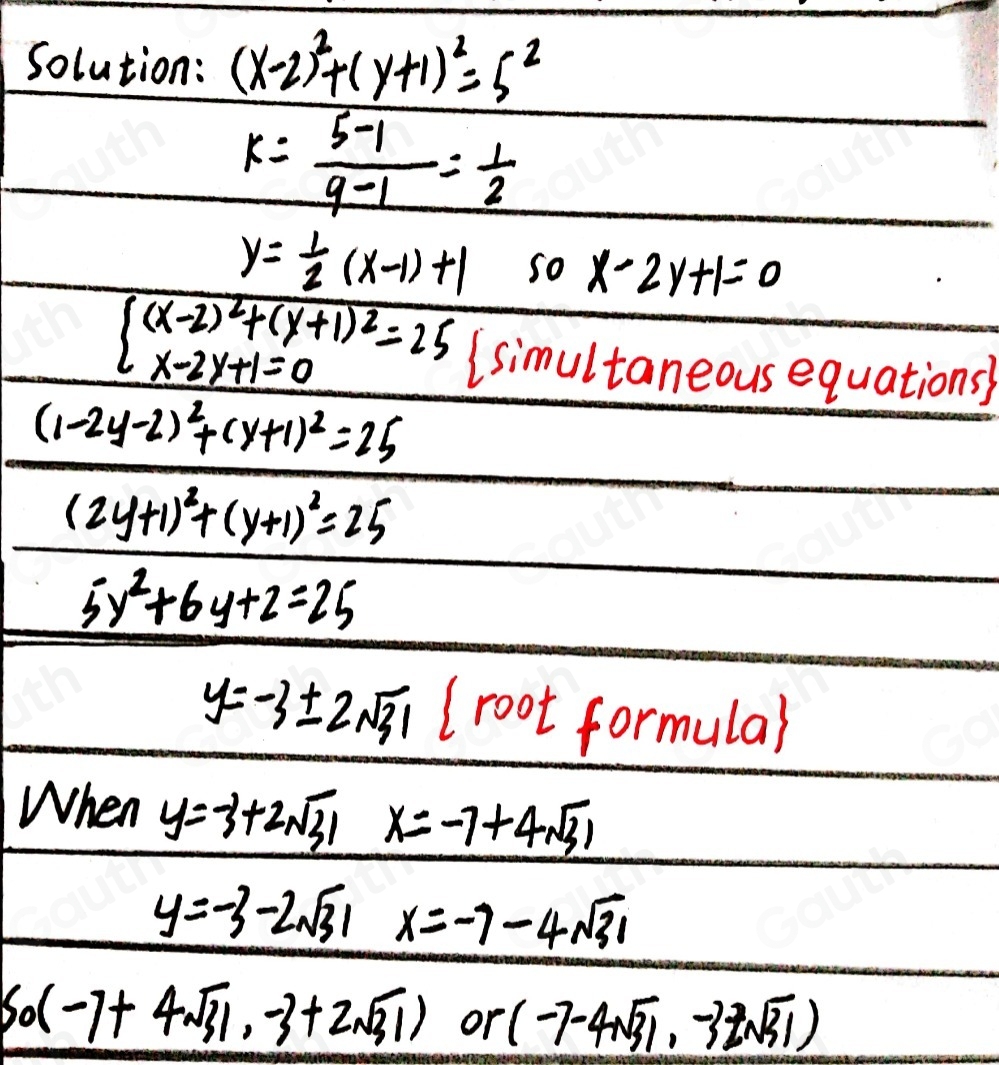 Solution: (x-2)²+(y+1)²=5²
K= (5-1)/(9-1) = 1/2
y= 1/2 (x-1)+1 so x-2y+1=0
{(x-2)²+(y+1)²=25
x-2y+1=0 {simultaneous equations}
(1-2y-2)²+(y+1)²=25
(2y+1)²+(y+1)²=25
5y²+6y+2=25
y=-3±2√31 {root formula}
When y=-3+2√31 x=-7+4√31
y=-3-2√31 x=-7-4√31
So(-7+4√31,-3+2√31) or(-7-4√31,-3-2√31)
Gauth